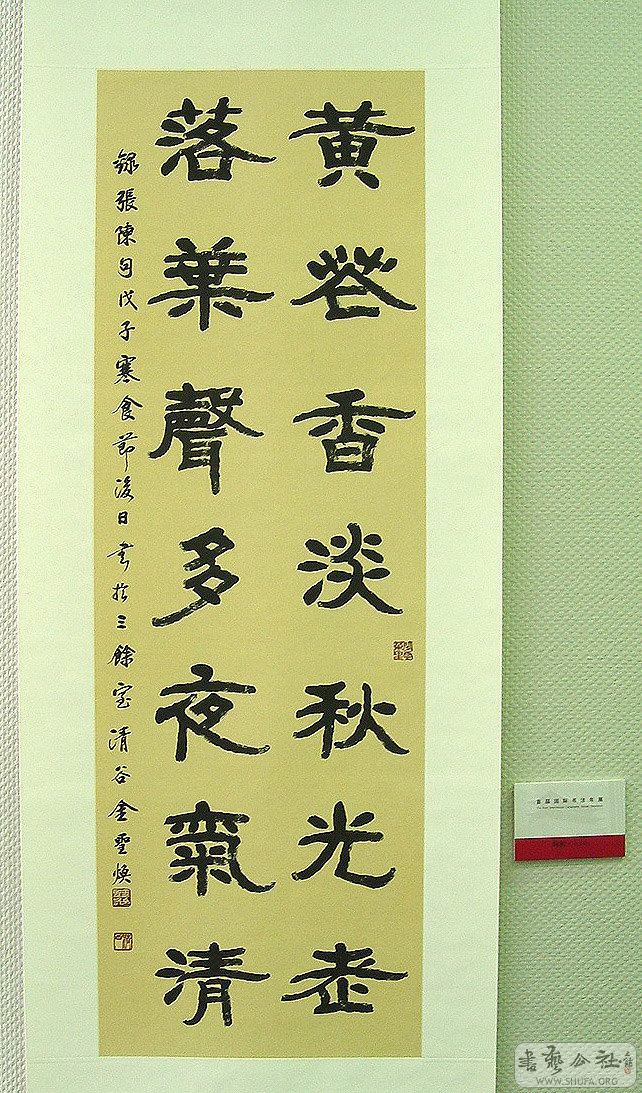 黄花香淡秋光老
落葉聲多夜氣清
錄張陳句戊子寒食節後日書於三餘室清谷金聖煥
首届国际书法年展
書藝公社
WWW.SHUFA.ORG